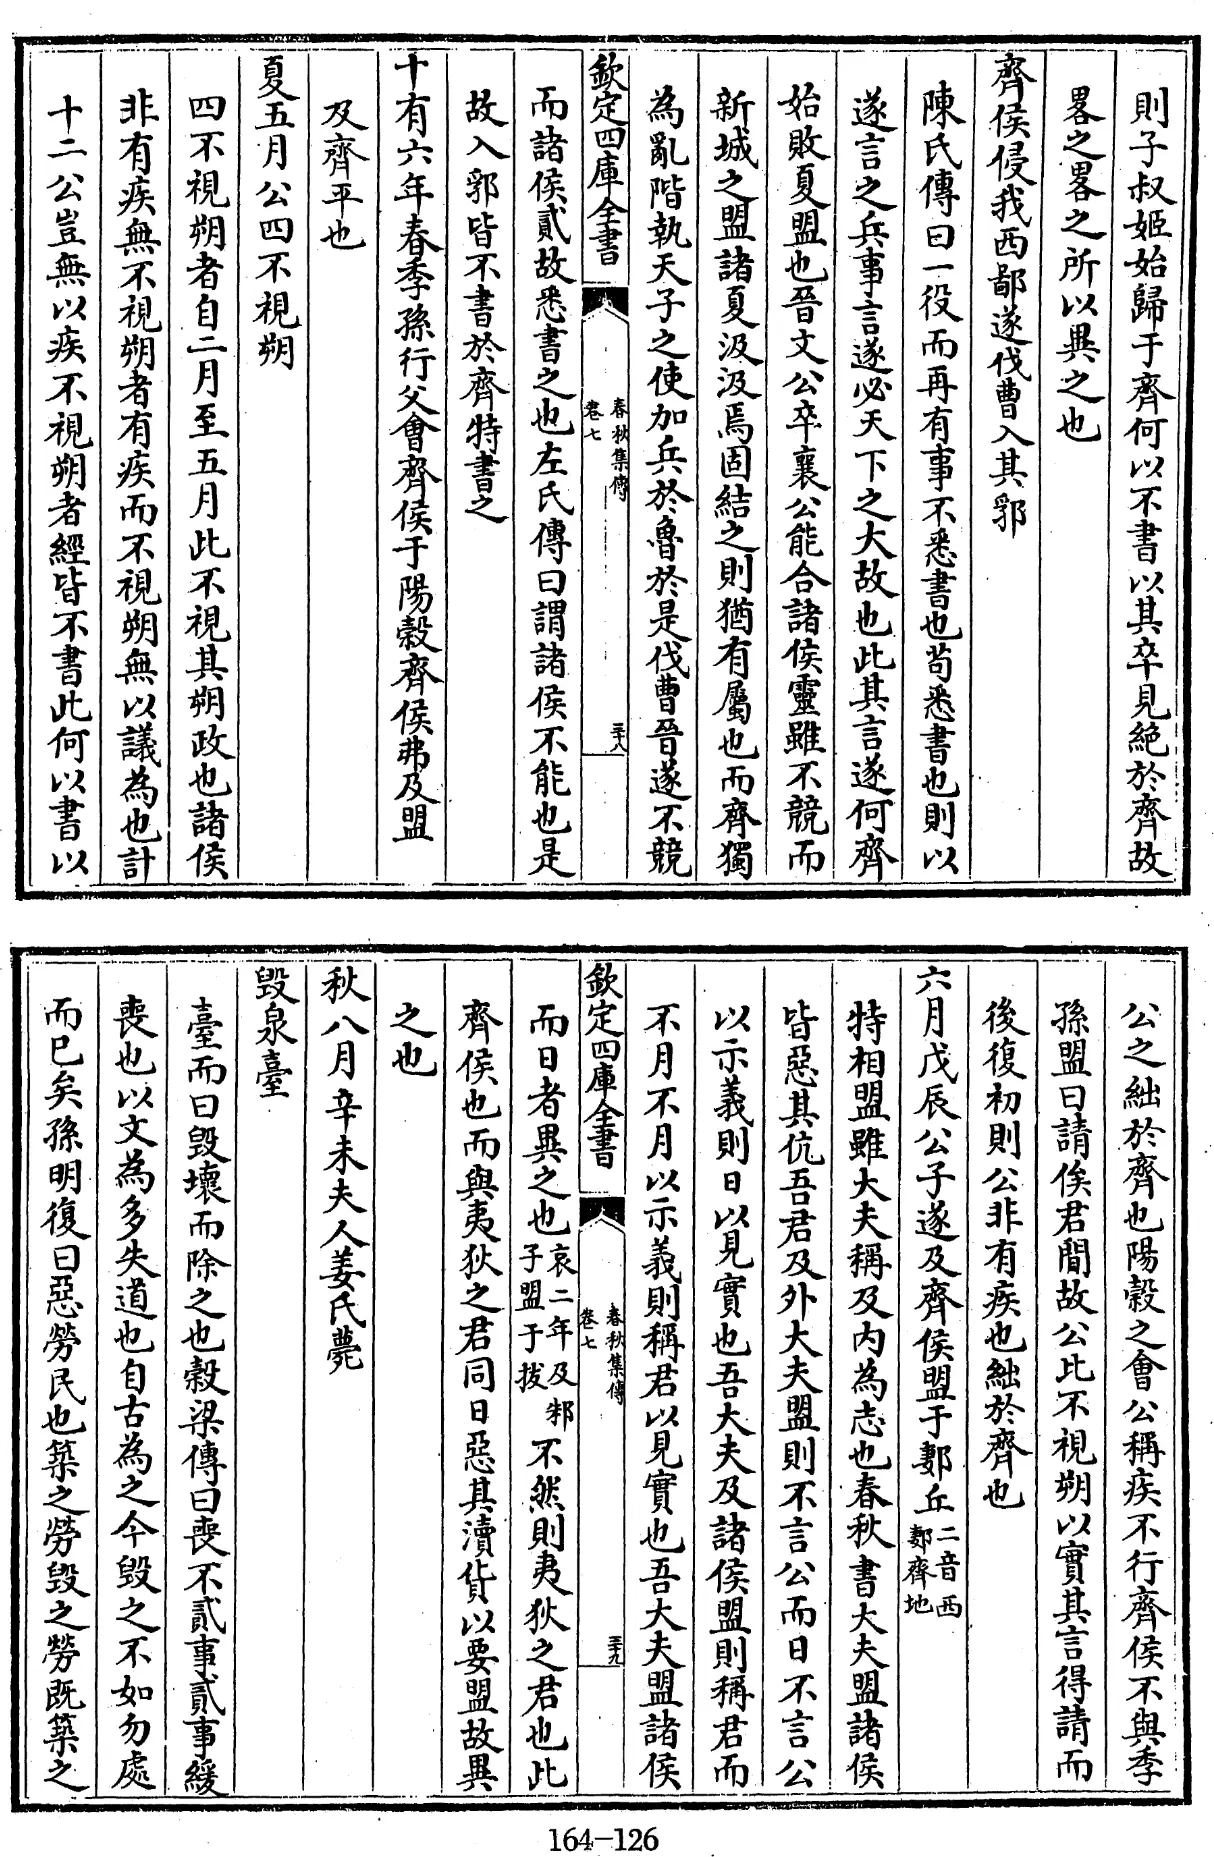 則子叔姬始歸于齊何以不書以其卒見絶於齊故
畧之畧之所以異之也
齊侯侵我西鄙遂伐曹入其郛
陳氏傳曰一役而再有事不悉書也茍悉書也則以
遂言之兵事言遂必天下之大故也此其言遂何齊
始敗夏盟也晉文公卒襄公能合諸侯靈雖不競而
新城之盟諸夏汲汲焉固結之則猶有屬也而齊獨
為亂階執天子之使加兵於魯於是伐曹晉遂不競
欽定四庫全書
春秋集傳
卷七
三十八
而諸侯貳故悉書之也左氏傳曰謂諸侯不能也是
故入郛皆不書於齊特書之
十有六年春季孫行父會齊侯于陽穀齊侯弗及盟
及齊平也
夏五月公四不視朔
四不視朔者自二月至五月此不視其朔政也諸侯
非有疾無不視朔者有疾而不視朔無以議為也計
十二公豈無以疾不視朔者經皆不書此何以書以
公之絀於齊也陽穀之會公稱疾不行齊侯不與季
孫盟曰請俟君間故公比不視朔以實其言得請而
後復初則公非有疾也絀於齊也
六月戊辰公子遂及齊侯盟于郪丘二音西
郪齊地
特相盟雖大夫稱及内為志也春秋書大夫盟諸侯
皆惡其伉吾君及外大夫盟則不言公而日不言公
以示義則日以見實也吾大夫及諸侯盟則稱君而
不月不月以示義則稱君以見實也吾大夫盟諸侯
欽定四庫全書
春秋集傳
卷七
三十九
而日者異之也哀二年及邾
子盟于拔不然則夷狄之君也此
齊侯也而與夷狄之君同日惡其瀆貨以要盟故異
之也
秋八月辛未夫人姜氏薨
毁泉臺
臺而曰毁壞而除之也穀梁傳曰喪不貳事貳事緩
喪也以文為多失道也自古為之今毁之不如勿處
而已矣孫明復曰惡勞民也築之勞毁之勞既築之
164-126